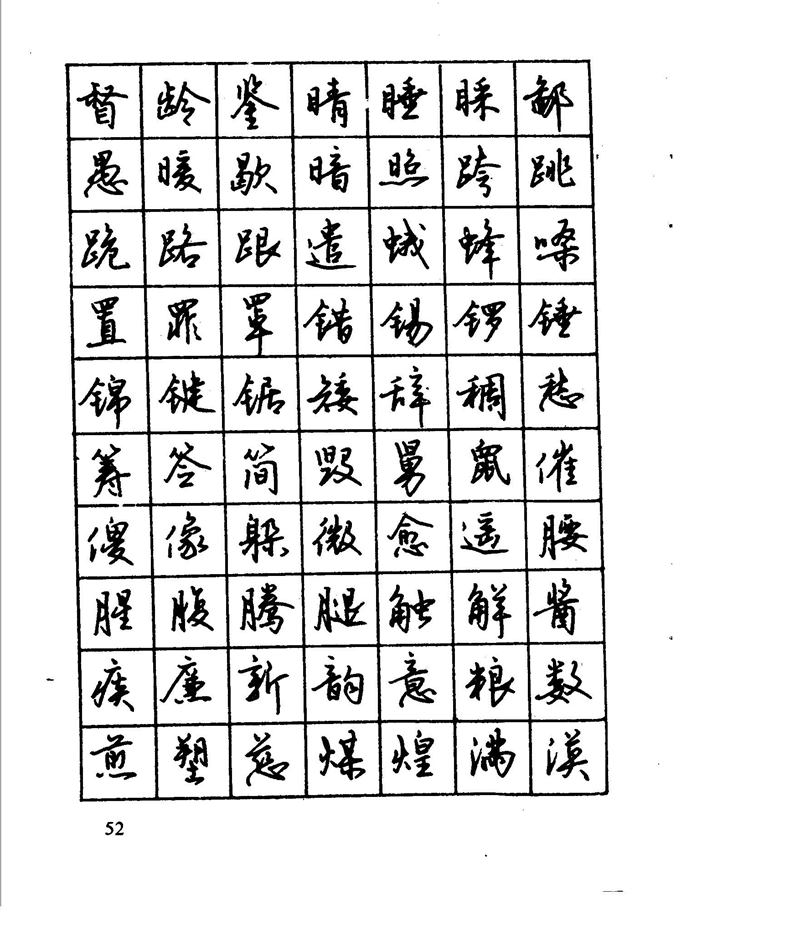 督龄鉴睛睡睬鄙
愚暖歇暗照跨跳
跪路跟遣蛾蜂嗓
置罪罩错锡锣锤
锦键锯矮辞稠愁
筹签简毁舅鼠催
傻像躲微愈遥腰
腥腹腾腿触解酱
痰廉新韵意粮数
煎塑慈煤煌满漠
52